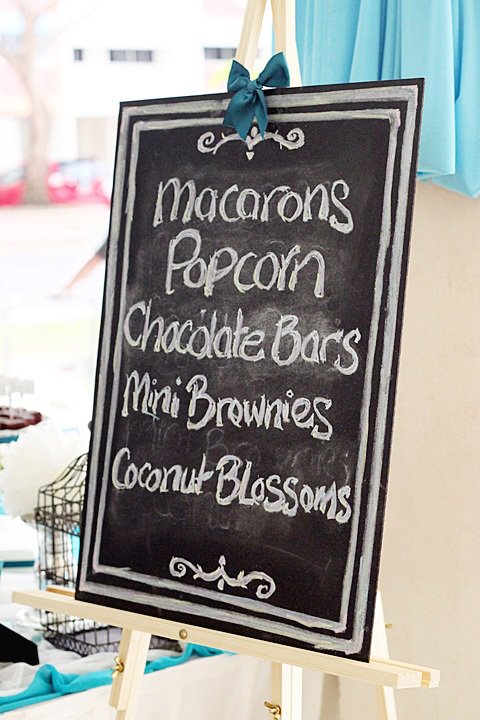 Macarons
Popcorn
Chocolate Bars
Mini Brownies
Coconut Blossoms